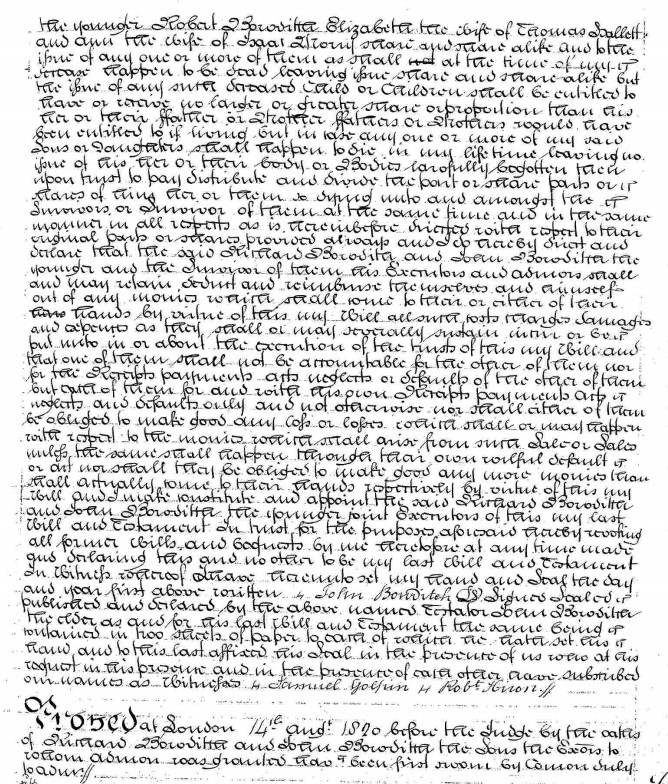 the younger Robert Bowditch Elizabeth the wife of Thomas Hallett
and Ann the wife of Isaac share and share alike and to the
issue of any one or more of them as shall at the time of my
decease happen to be dead leaving issue share and share alike but
the issue of any such deceased Child or Children shall be entitled to
have or receive no larger or greater share or proportion than his
her or their ffather or Mother ffathers or Mothers would have
been entitled to if living but in case any one or more of my said
Sons or Daughters shall happen to die in my life time leaving no
issue of his her or their body or Bodies lawfully begotten then
upon trust to pay distribute and divide the part or share parts or
shares of him her or them so dying unto and amongst the
Survivors or Survivor of them at the same time and in the same
manner in all respects as is hereinbefore directed with respect to their
original parts or shares provided always and I do hereby direct and
declare that the said Richard Bowditch and John Bowditch the
younger and the Survivor of them his Executors and admors shall
and may retain deduct and reimburse themselves and himself
out of any monies which shall come to their or either of their
hands by virtue of this my Will all such costs charges damages
and expences as they shall or may severally sustain incur or be
put unto in or about the execution of the trusts of this my Will and
that one of them shall not be accountable for the other of them nor
for the Receipts payments acts neglects or defaults of the other of them
but each of them for and with his own Receipts payments Acts
neglects and defaults only and not otherwise nor shall either of them
be obliged to make good any loss or losses which shall or may happen
with respect to the monies which shall arise from such Sale or Sales
unless the same shall happen through their own wilful default
or act nor shall they be obliged to make good any more monies than
shall actually come to their hands respectively by virtue of this my
Will and I make constitute and appoint the said Richard Bowditch
and John Bowditch the younger joint Executors of this my last
Will and Testament In trust for the purposes aforesaid hereby revoking
all former Wills and Bequests by me heretofore at any time made
and declaring this and no other to be my last Will and Testament
In Witness whereof I have hereunto set my hand and Seal the day
and year first above written John Bowditch Signed Sealed
published and declared by the above named Testator John Bowditch
the elder as and for his last Will and Testament the same being
contained in two sheets of paper to each of which he hath set his
hand and to this last affixed his Seal in the presence of us who at his
request in his presence and in the presence of each other have subscribed
our names as Witnesses Samuel Robt
Proved at London 14th Augt 1820 before the Judge by the oaths
of Richard Bowditch and John Bowditch the Sons the Exors to
whom admon was granted having been first sworn by Comon duly
to admr